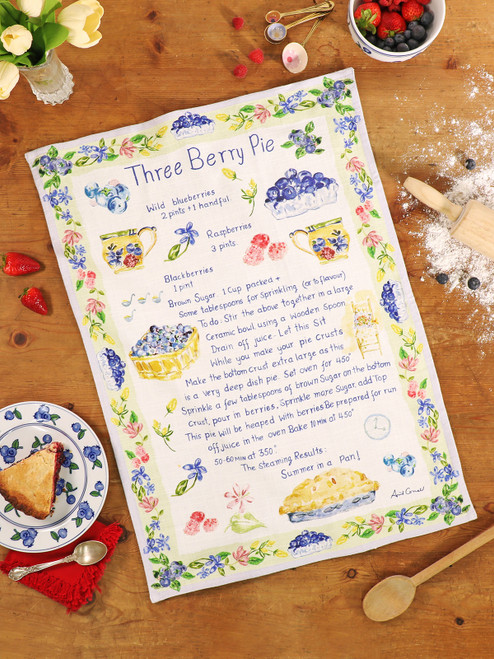 Three Berry Pie
Wild blueberries
2 pints + 1 handful
Raspberries
3 pints
Blackberries
1 pint
Brown Sugar 1 Cup packed +
Some tablespoons for Sprinkling (or to flavour)
To do: Stir the above together in a large
Ceramic bowl using a Wooden Spoon
Drain off juice - Let this Sit
While you make your pie Crusts
Make the bottom Crust extra large as this
is a very deep dish pie. Set oven for 450°
Sprinkle a few tablespoons of brown Sugar on the bottom
Crust, pour in berries, Sprinkle more Sugar, add Top
Crust. This pie will be heaped with berries Be prepared for run
off Juice in the oven Bake 10 min at 450°
50-60 min at 350°
The steaming Results:
Summer in a Pan!